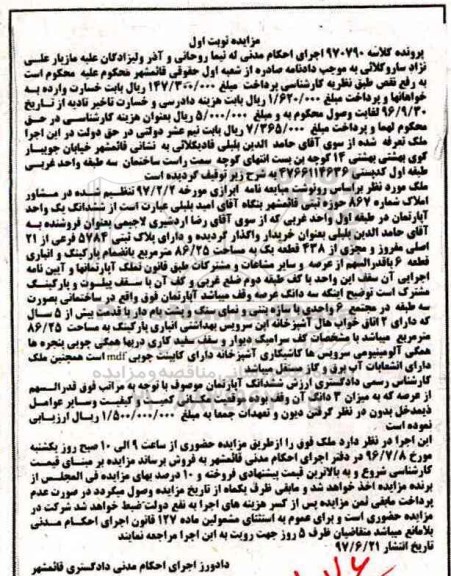 مزایده نوبت اول
پرونده کلاسه ۹۷۰۷۹۰ اجرای احکام مدنی له نیما روحانی و آذر ولیزادگان علیه مازیار علی
نژاد ساروکلائی به موجب دادنامه صادره از شعبه اول حقوقی قائمشهر محکوم علیه محکوم است
به رفع نقص طبق نظریه کارشناسی پرداخت مبلغ ۱۴۷/۳۰۰/۰۰۰ ریال بابت خسارت وارده به
خواهانها و پرداخت مبلغ ۱/۶۲۰/۰۰۰ ریال بابت هزینه دادرسی و خسارت تاخیر تادیه از تاریخ
۹۶/۹/۳۰ لغایت وصول محکوم به و مبلغ ۵/۰۰۰/۰۰۰ ریال بعنوان هزینه کارشناسی در حق
محکوم لهما و پرداخت مبلغ ۷/۳۶۵/۰۰۰ بابت نیم عشر دولتی در حق دولت در این اجرا
ملک تعرفه شده از سوی آقای حامد الدین بلبلی قادیکلائی به نشانی قائمشهر خیابان جویبار
کوی بهشتی بهشتی ۱۴ کوچه بن بست انتهای کوچه سمت راست ساختمان سه طبقه واحد غربی
طبقه اول کدپستی ۴۷۶۶۱۱۴۶۳۶ به شرح زیر توقیف گردیده است
ملک مورد نظر براساس رونوشت مبایعه نامه ابرازی مورخه ۹۷/۲/۲ تنظیم شده در مشاور
املاک شماره ۸۶۷ حوزه ثبتی قائمشهر بنگاه آقای امید بلبلی عبارت است از ششدانگ یک واحد
آپارتمان در طبقه اول واحد غربی که از سوی آقای رضا اردشیری لاجیمی بعنوان فروشنده به
آقای حامد الدین بلبلی بعنوان خریدار واگذار گردیده و دارای پلاک ثبتی ۵۷۸۴ فرعی از ۲۱
اصلی مفروز و مجزی از ۴۳۸ قطعه یک به مساحت ۸۶/۲۵ مترمربع بانضمام پارکینگ و انباری
قطعه ۶ باقدرالسهم از عرصه و سایر مشاعات و مشترکات طبق قانون تملک آپارتمانها و آیین نامه
اجرایی آن سقف این واحد با کف طبقه دوم ضلع غربی و کف آن با سقف پیلوت و پارکینگ
مشترک است توضیح اینکه سه دانگ عرصه وقف میباشد آپارتمان فوق واقع در ساختمانی بصورت
سه طبقه در مجتمع ۶ واحدی با سازه بتنی و نمای سنگ و پشت بام دار با قدمت بیش از ۵ سال
که دارای ۲ اتاق خواب هال آشپزخانه اپن سرویس بهداشتی انباری پارکینگ به مساحت ۸۶/۲۵
مترمربع میباشد با مشخصات کف سرامیک دیوار و سقف سفید کاری دربها همگی چوبی پنجره ها
همگی آلومینیومی سرویس ها کاشیکاری آشپزخانه دارای کابینت چوبی mdf است همچنین ملک
دارای انشعابات آب برق و گاز مستقل میباشد
کارشناس رسمی دادگستری ارزش ششدانگ آپارتمان موصوف با توجه به مراتب فوق قدرالسهم
از عرصه که به میزان ۳ دانگ آن وقف بوده موقعیت مکانی کمیت کیفیت و سایر عوامل
ذیمدخل بدون در نظر گرفتن دیون و تعهدات جمعا به مبلغ ۱/۵۰۰/۰۰۰/۰۰۰ ریال ارزیابی
نموده است
این اجرا در نظر دارد ملک فوق را ازطریق مزایده حضوری از ساعت ۹ الی ۱۰ صبح روز یکشنبه
مورخ ۹۶/۷/۸ در دفتر اجرای احکام مدنی قائمشهر به فروش برساند مزایده بر مبنای قیمت
کارشناسی شروع و به بالاترین قیمت پیشنهادی فروخته و ۱۰ درصد بهای مزایده فی المجلس از
برنده مزایده اخذ خواهد شد و مابقی ظرف یکماه از تاریخ مزایده وصول میگردد در صورت عدم
پرداخت مابقی ثمن مزایده پس از کسر هزینه های اجرا به نفع دولت ضبط خواهد شد شرکت در
مزایده حضوری است و برای عموم به استثنای مشمولین ماده ۱۲۷ قانون اجرای احکام مدنی
بلامانع میباشد متقاضیان ظرف ۵ روز جهت رویت به این اجرا مراجعه نمایند
تاریخ انتشار ۹۷/۶/۲۱
دادورز اجرای احکام مدنی دادگستری قائمشهر